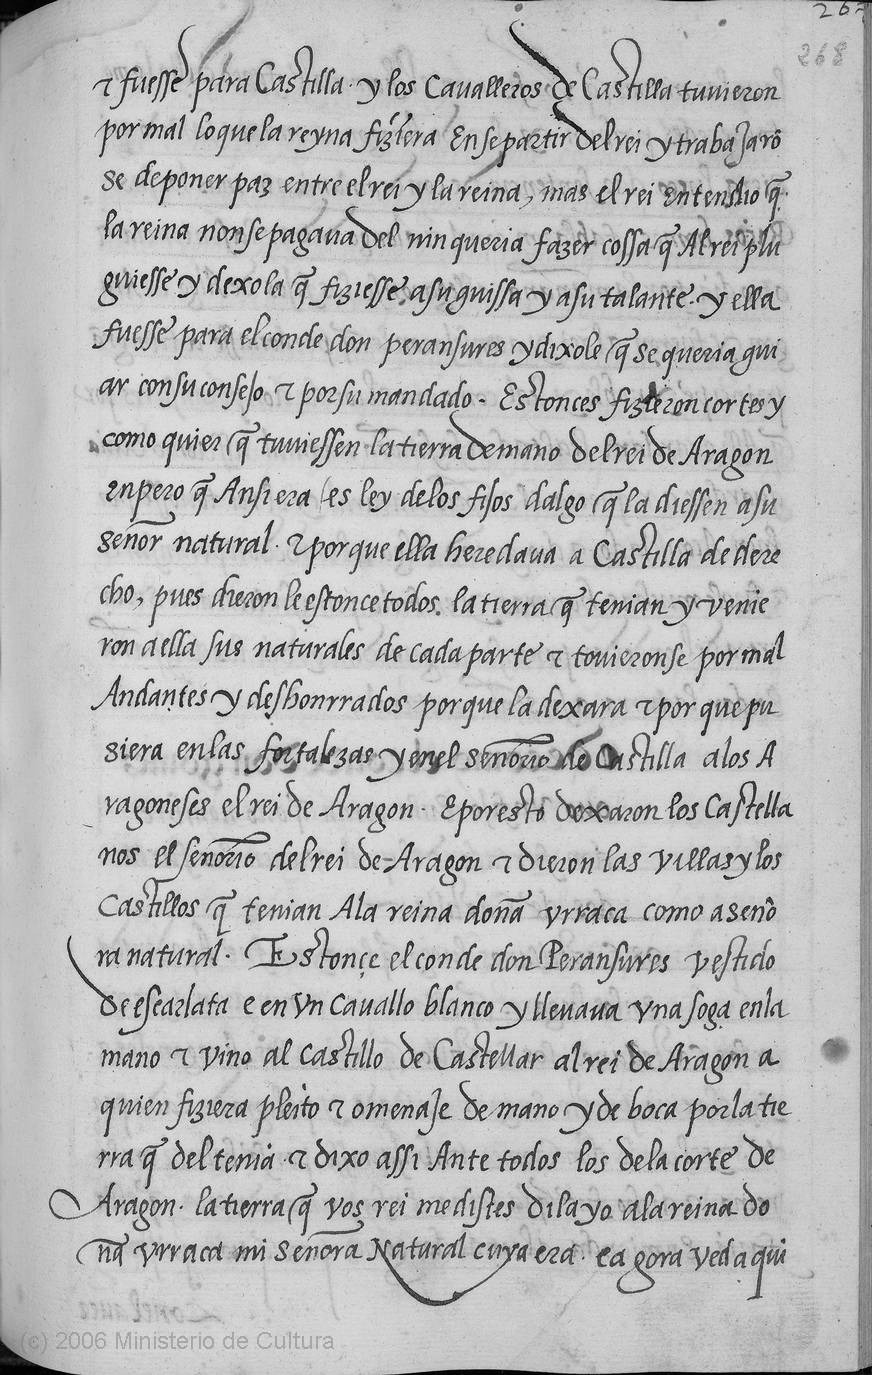 267
268
τ fuesse para Castilla · y los Cavalleros de Castilla tuvieron
por mal lo que la reyna fiziera En se partir del rei y trabajarõ
se de poner paz entre el rei y la reina, mas el rei entendio q̃
la reina non se pagava del nin queria fazer cossa q̃ Al rei plu
guiesse y dexola q̃ fiziesse, a su guissa y a su talante. y ella
fuesse para el conde don peransures y dixole q̃ se queria gui
ar con su consejo τ por su mandado. Estonces fizieron cortes y
como quier q̃ tuviessen la tierra de mano del rei de Aragon
enpero q̃ Ansi era es ley de los fijos dalgo q̃ la diessen a su
señor natural. τ porque ella heredava a Castilla de dere
cho, pues dieron le estonce todos. la tierra q̃ tenian y venie
ron a ella sus naturales de cada parte τ tovieronse por mal
Andantes y deshonrrados porque la dexara τ por que pu
siera en las fortalezas y en el señorio de Castilla a los A
ragoneses el rei de Aragon. E por esto dexaron los Castella
nos el señorio del rei de Aragon τ dieron las villas y los
Castillos q̃ tenian A la reina doña vrraca como a seño
ra natural. Estonçe el conde don Peransures vestido
de escarlata e en vn cavallo blanco y llevava vna soga en la
mano τ vino al castillo de Castellar al rei de Aragon a
quien fiziera pleito τ omenaje de mano y de boca por la tie
rra q̃ del tenia τ dixo assi Ante todos los de la corte de
Aragon. la tierra q̃ vos rei me distes di la yo a la reina do
ña vrraca mi señora Natural cuya era. e agora ved aqui
(c) 2006 Ministerio de Cultura